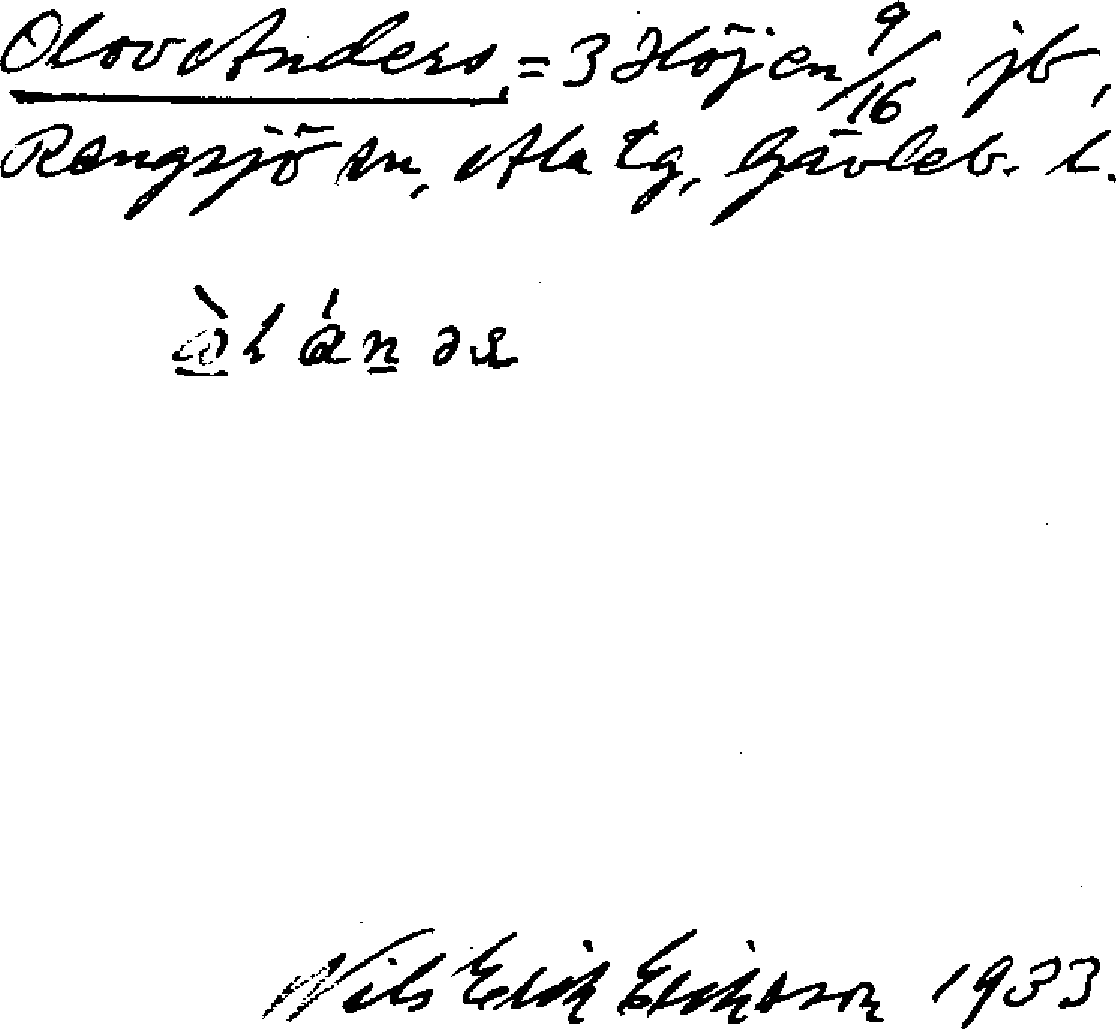 Olov Anders, = 3 Höjen 9/16 jb,
Rengsjö sn, Ala tg, Gävleb. l.
Nils Erik Eriksson 1933